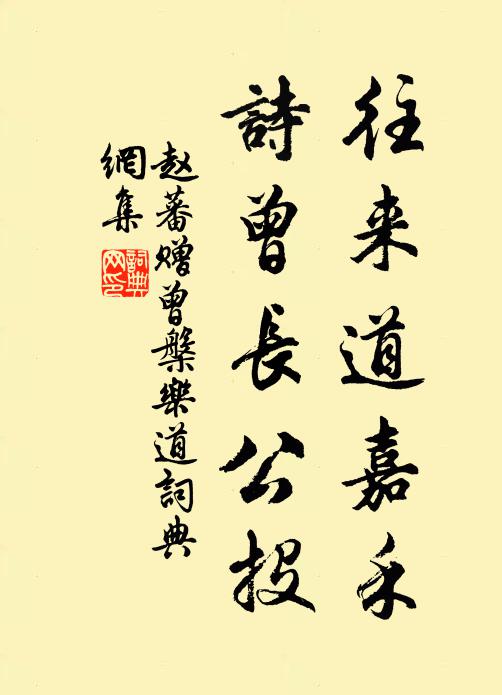 往来道嘉禾
詩曾長公投
赵蕃赠曾槃樂道詞典
網集
詞典
网印